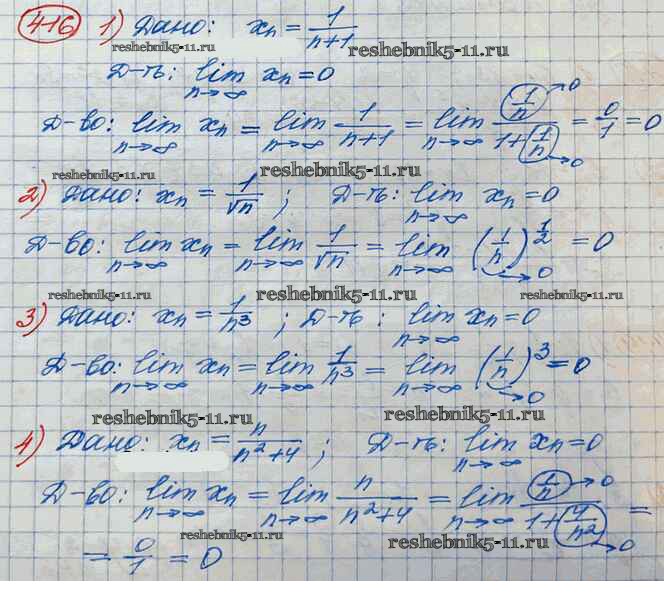 416 1) Дано: xₙ = 1/(n+1)
reshebnik5-11.ru reshebnik5-11.ru
Д-ть: lim n→∞ xₙ = 0
Д-во: lim n→∞ xₙ = lim n→∞ 1/(n+1) = lim n→∞ (1/n →0)/(1 + 1/n →0) = 0/1 = 0
reshebnik5-11.ru reshebnik5-11.ru
2) Дано: xₙ = 1/√n ; Д-ть: lim n→∞ xₙ = 0
Д-во: lim n→∞ xₙ = lim n→∞ 1/√n = lim n→∞ (1/n)^(1/2) = 0 →0
reshebnik5-11.ru reshebnik5-11.ru reshebnik5-11.ru
3) Дано: xₙ = 1/n³ ; Д-ть: lim n→∞ xₙ = 0
Д-во: lim n→∞ xₙ = lim n→∞ 1/n³ = lim n→∞ (1/n)³ = 0 →0
reshebnik5-11.ru reshebnik5-11.ru
4) Дано: xₙ = n/(n²+4) ; Д-ть: lim n→∞ xₙ = 0
Д-во: lim n→∞ xₙ = lim n→∞ n/(n²+4) = lim n→∞ (1/n →0)/(1 + 4/n² →0) =
reshebnik5-11.ru reshebnik5-11.ru
= 0/1 = 0